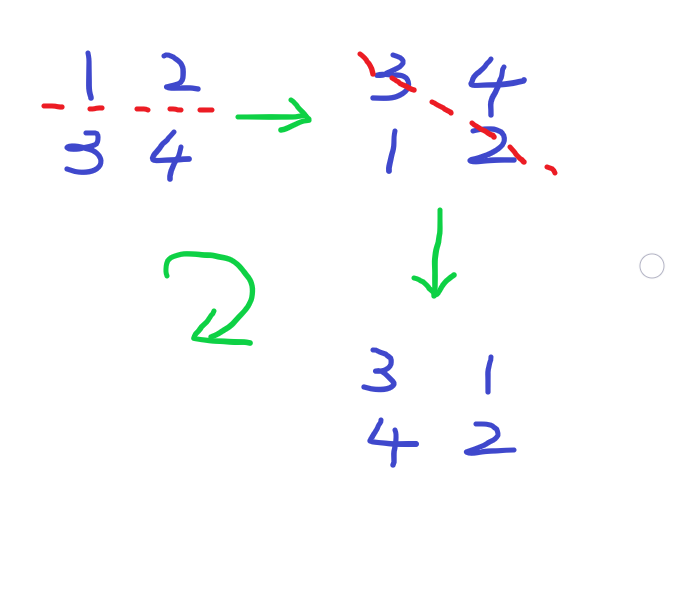 1 2 3 4
3 4 1 2
2
3 1
4 2